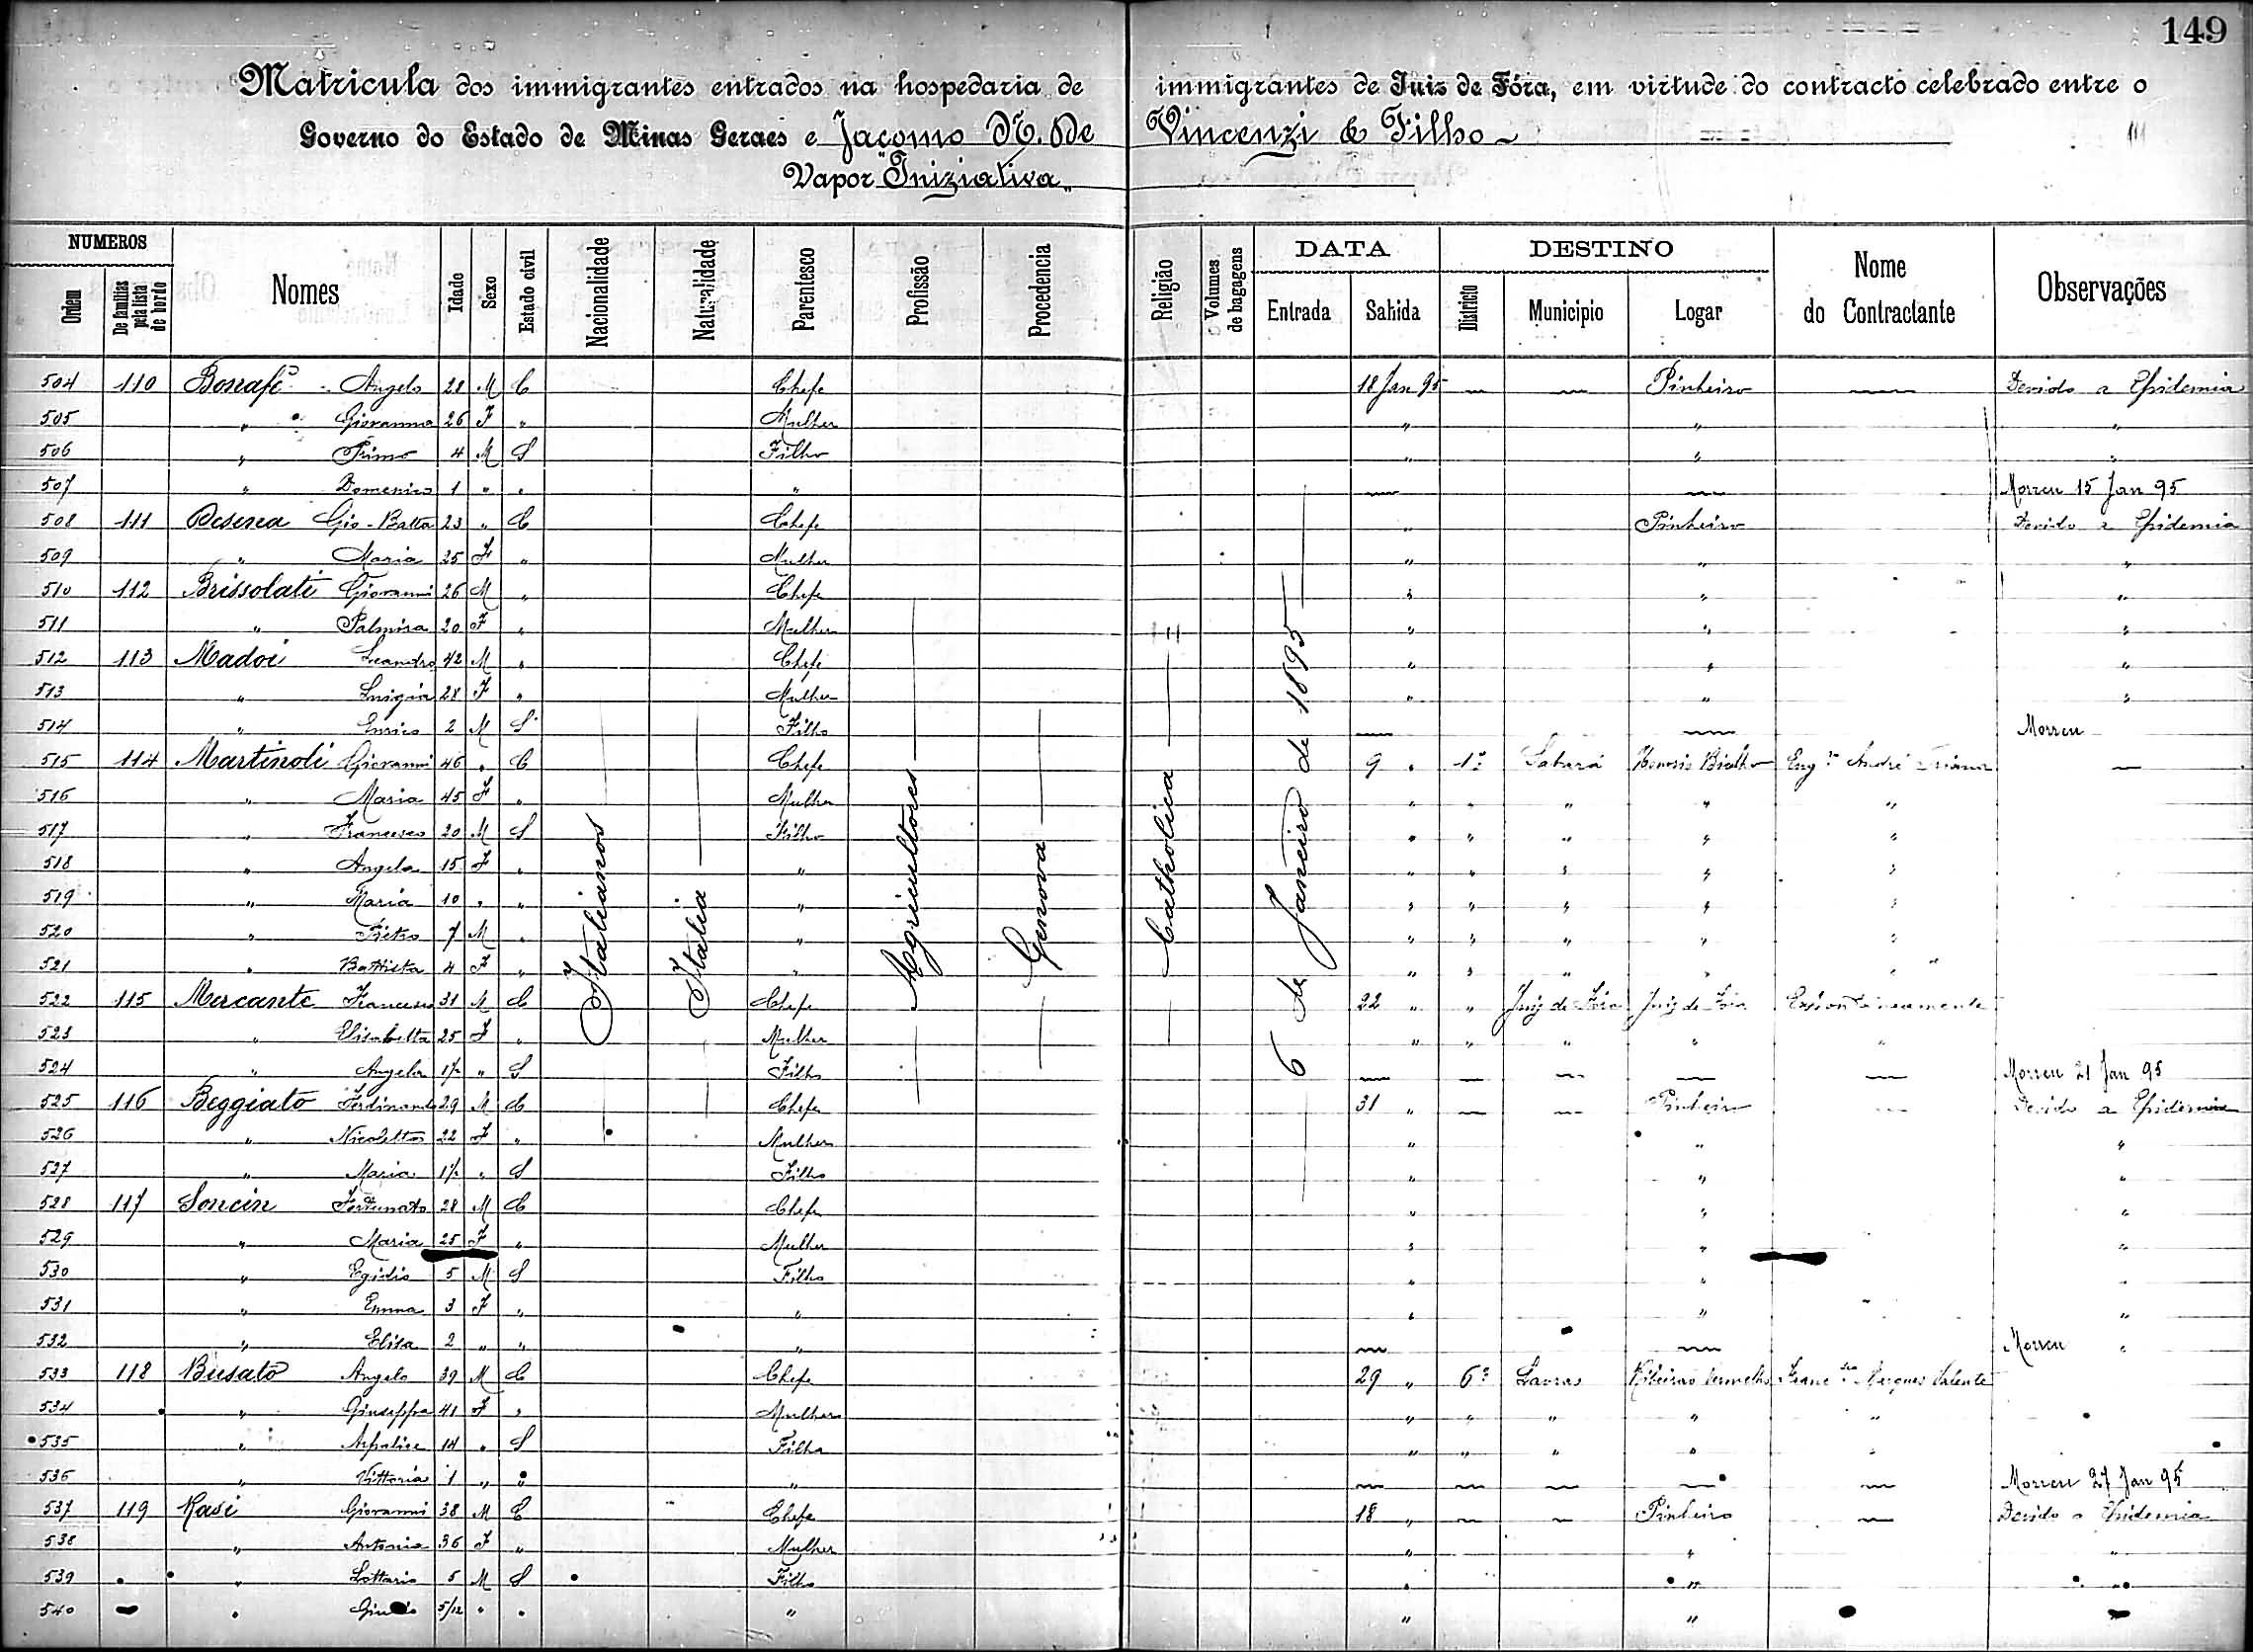 149
Matricula dos immigrantes entrados na hospedaria de immigrantes de Juiz de Fóra, em virtude do contracto celebrado entre o
Governo do Estado de Minas Geraes e Jacomo N. De Vincenzi & Filho
Vapor "Iniziativa"
NUMEROS
DATA DESTINO
Ordem De familias pela lista de bordo Nomes Idade Sexo Estado civil Nacionalidade Naturalidade Parentesco Profissão Procedencia Religião Volumes de bagagens Entrada Sahida Districto Municipio Logar Nome do Contractante Observações
Italianos Italia Agricultores Genova Catholica 6 de Janeiro de 1895
504 110 Bonafé Angelo 28 M C Chefe 18 Jan 95 Pinheiro Devido a Epidemia
505 " Giovanna 26 F " Mulher " " "
506 " Primo 4 M S Filho " " "
507 " Domenico 1 " " " Morreu 15 Jan 95
508 111 Gio-Batta 23 " C Chefe " Pinheiro Devido a Epidemia
509 " Maria 25 F " Mulher " " "
510 112 Brissolati Giovanni 26 M " Chefe " " "
511 " Palmira 20 F " Mulher " " "
512 113 Madoi Leandro 42 M " Chefe " " "
513 " Luigia 28 F " Mulher " " "
514 " Enrico 2 M S Filho Morreu
515 114 Martinoli Giovanni 46 " C Chefe 9 " 1º Sabará Eng.ro André
516 " Maria 45 F " Mulher " " " " "
517 " Francesco 20 M S Filho " " " " "
518 " Angela 15 F " " " " " " "
519 " Maria 10 " " " " " " " "
520 " Pietro 7 M " " " " " " "
521 " Battista 4 F " " " " " " "
522 115 Mercante Francesco 31 M C Chefe 22 " " Juiz de Fóra Juiz de Fóra Espontaneamente
523 " Elisabetta 25 F " Mulher " " " " "
524 " Angela 1½ " S Filha Morreu 21 Jan 95
525 116 Beggiato Ferdinando 29 M C Chefe 31 " Pinheiro Devido a Epidemia
526 " Nicoletta 22 F " Mulher " " "
527 " Maria 1½ " S Filha " " "
528 117 Soncin Fortunato 28 M C Chefe " " "
529 " Maria 25 F " Mulher " " "
530 " Egidio 5 M S Filho " " "
531 " Emma 3 F " " " " "
532 " Elisa 2 " " " Morreu "
533 118 Busato Angelo 39 M C Chefe 29 " 6º Lavras Ribeirão Vermelho Franc.co Marques Valente
534 " Giuseppa 41 F " Mulher " " " " "
535 " 14 " S Filha " " " " "
536 " Vittoria 1 " " " Morreu 27 Jan 95
537 119 Rasi Giovanni 38 M C Chefe 18 " Pinheiro Devido a Epidemia
538 " Antonia 36 F " Mulher " " "
539 " Lottario 5 M S Filho " " "
540 " 5/12 " " " " "